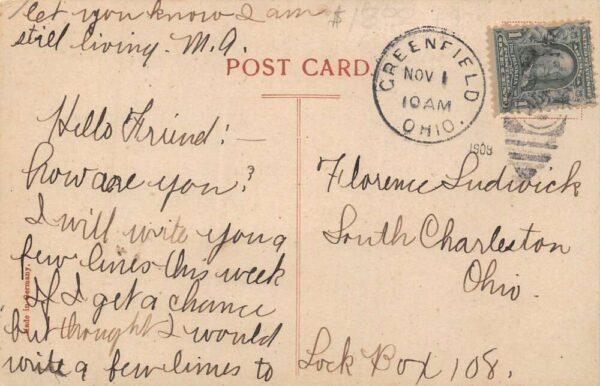 let you know I am
still living. M.A.
POST CARD
GREENFIELD
NOV 1
10AM
OHIO.
1908
Hello Friend! —
how are you?
I will write you a
few lines this week
If I get a chance
but thought I would
write a few limes to
Made in Germany.
Florence Ludwick
South Charleston
Ohio.
Lock Box 108.
1
1